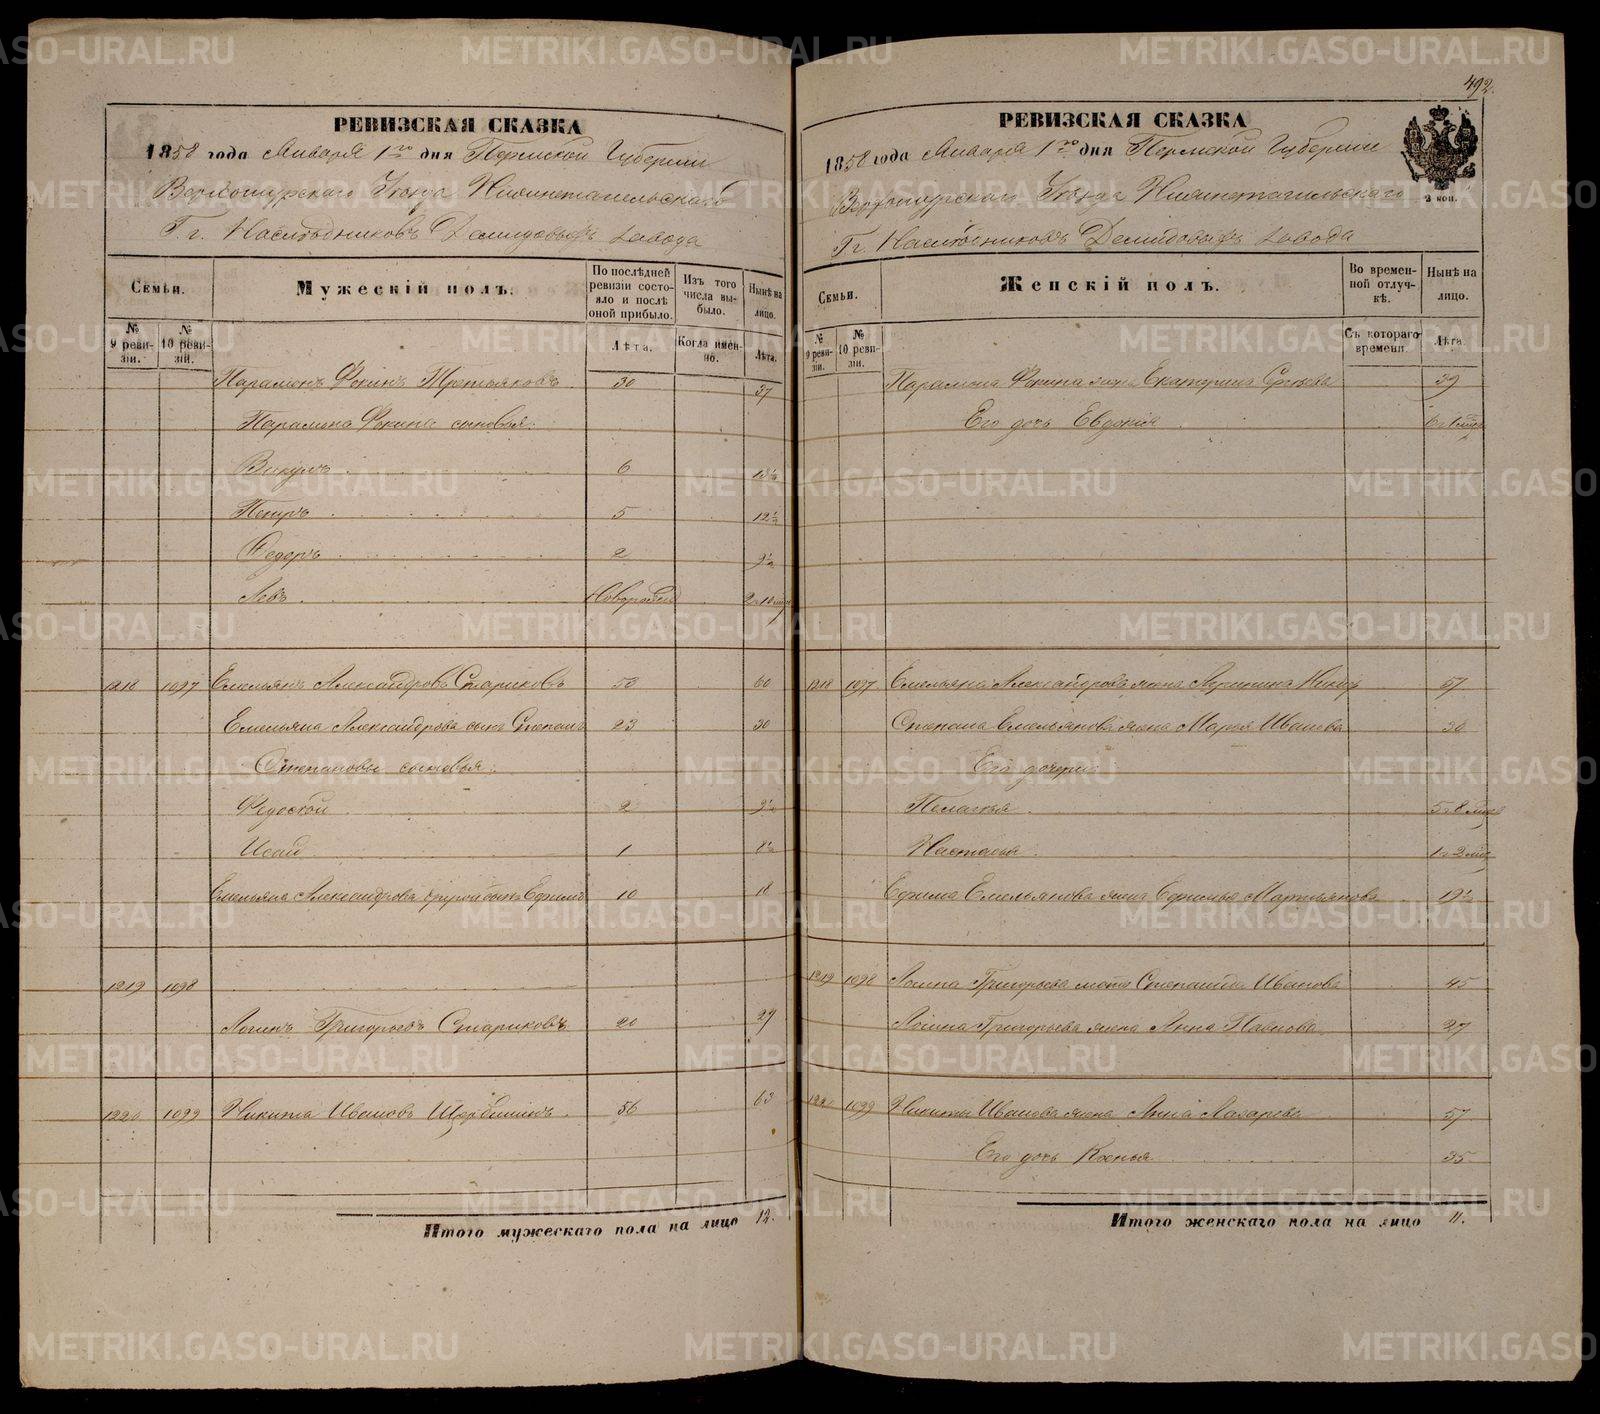 492.
РЕВИЗСКАЯ СКАЗКА
1858 года Января 1го дня Пермской Губернии
Верхотурскаго Уезда Нижнетагильскаго
Г. г. Наследниковъ Демидовыхъ завода
Семьи.
Мужескій полъ.
По последней ревизіи состояло и после оной прибыло.
Изъ того числа выбыло.
Ныне на лицо.
№ 9 ревизіи.
№ 10 ревизіи.
Лета.
Когда именно.
Лета.
Парамонъ Фокинъ Третьяковъ 30 37
Парамона Фокина сыновья:
Викулъ 6 13½
Петръ 5 12½
Федоръ 2 9½
Левъ
1218 1097 Емельянъ Александровъ Стариковъ 53 60
Емельяна Александрова сынъ Степанъ 23 30
Степановы сыновья:
Федосей 2 9½
Исай 1 8½
Емельяна Александрова другой сынъ Ефимъ 10 18
1219 1098
Логинъ Григорьевъ Стариковъ 20 27
1220 1099 Никита Ивановъ 56 63
Итого мужескаго пола на лицо 12.
РЕВИЗСКАЯ СКАЗКА
1858 года Января 1го дня Пермской Губерніи
Верхотурскаго Уезда Нижнетагильскаго
Гг. Наследниковъ Демидовыхъ завода
Семьи.
Женскій полъ.
Во временной отлучкѣ.
Нынѣ на лицо.
№ 9 ревизіи.
№ 10 ревизіи.
Съ котораго времени.
Лѣта.
Парамона Фокина жена Екатерина Сергеева 39
Его дочь Евдокія
1218 1097 Емельяна Александрова жена 57
Степана Емельянова жена Марья Иванова 30
Его дочери:
Пелагея
Настасья
Ефима Емельянова жена Ефимья Мартьянова 19½
1219 1098 Логина Григорьева мать Степанида Иванова 45
Логина Григорьева жена Анна Павлова 27
1220 1099 Никиты Иванова жена Анна Лазарева 57
Его дочь Ксенья 35
Итого женскаго пола на лицо 11.
METRIKI.GASO-URAL.RU